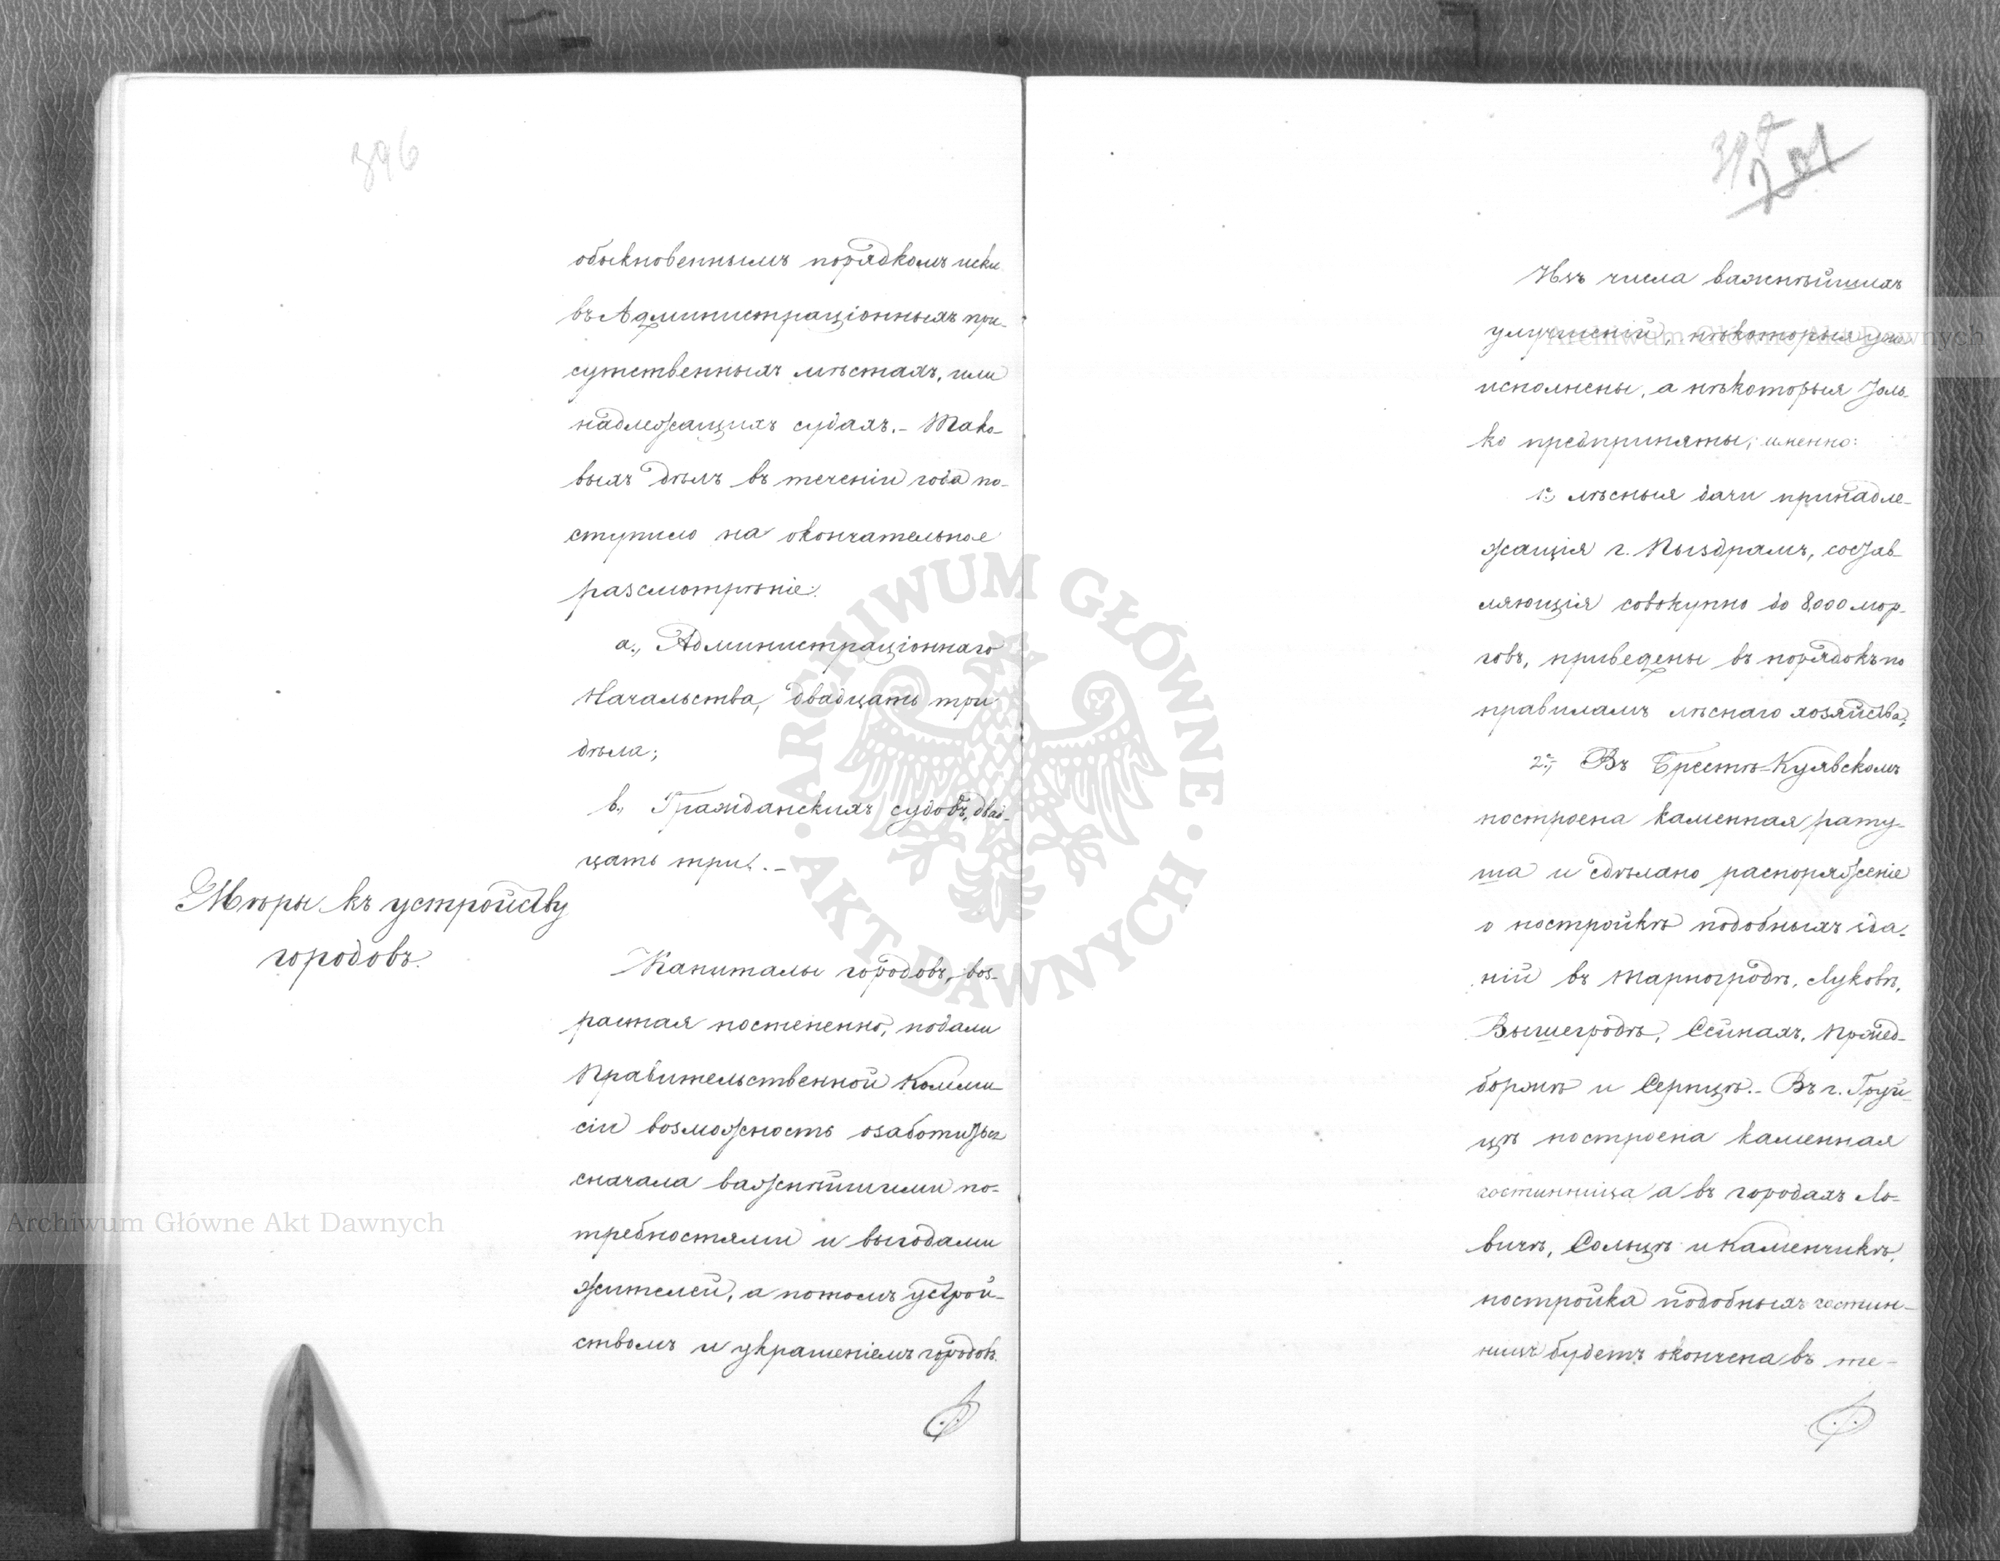 396
обыкновеннымъ порядкомъ иски
въ Администраціонныхъ при-
сутственныхъ мѣстахъ, или
надлежащихъ судахъ.- Тако-
выхъ дѣлъ въ теченіи года по-
ступило на окончательное
разсмотрѣніе:
а., Администраціоннаго
Начальства, двадцать три
дѣла;
в., Гражданскихъ судовъ, двад-
цать три.-
Мѣры къ устройству
городовъ.
Капиталы городовъ, воз-
растая постепенно, подали
Правительственной Комми-
сіи возможность озаботиться
сначала важнѣйшими по-
требностями и выгодами
жителей, а потомъ устрой-
ствомъ и украшеніемъ городовъ.
397
201
Изъ числа важнѣйшихъ
улучшеній, нѣкоторыя уже
исполнены, а нѣкоторыя толь-
ко предприняты; именно:
1е, лѣсныя дачи принадле-
жащія г. Пыздрамъ, состав-
ляющія совокупно до 8,000 мор-
говъ, приведены въ порядокъ по
правиламъ лѣснаго хозяйства;
2е, Въ Брестѣ-Куявскомъ
построена каменная рату-
ша и сдѣлано распоряженіе
о постройкѣ подобныхъ зда-
ній въ Тарногродѣ, Луковѣ,
Вышегродѣ, Сейнахъ, Пршед-
боржѣ и Серпцѣ.- Въ г. Груй-
цѣ построена каменная
гостинница а въ городахъ Ло-
вичѣ, Сольцѣ и Каменчикѣ,
постройка подобныхъ гостин-
ницъ будетъ окончена въ те-
ARCHIWUM GŁÓWNE AKT DAWNYCH
Archiwum Główne Akt Dawnych
Archiwum Główne Akt Dawnych